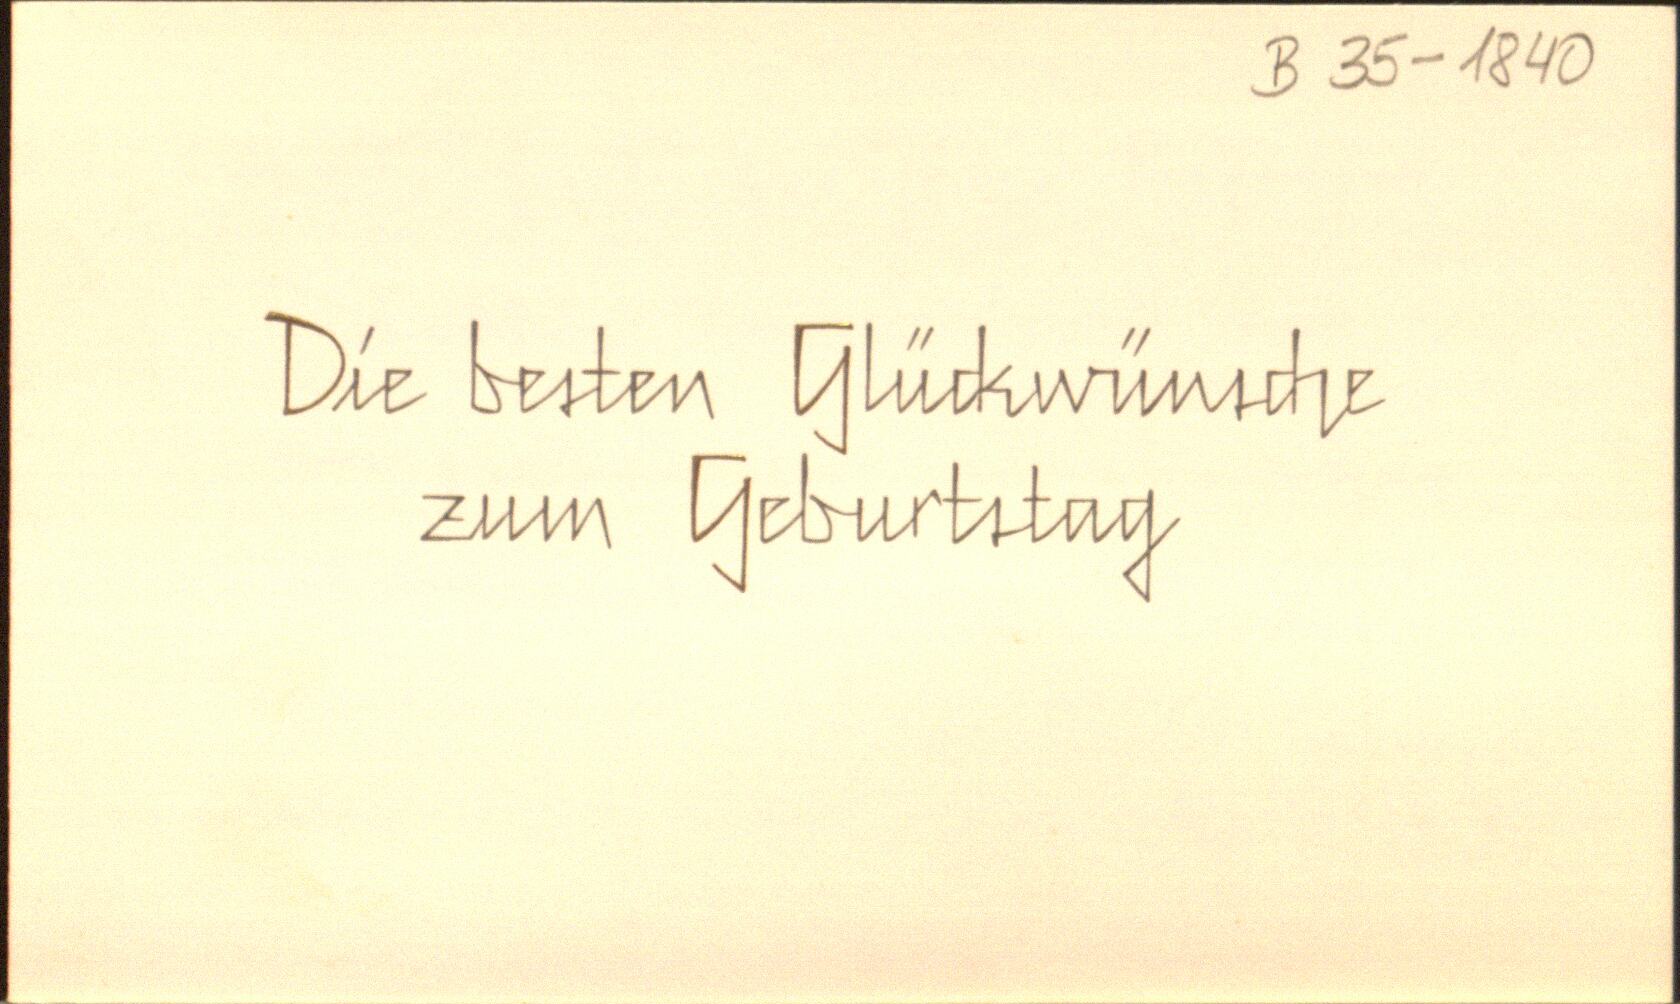 B 35-1840
Die besten Glückwünsche
zum Geburtstag